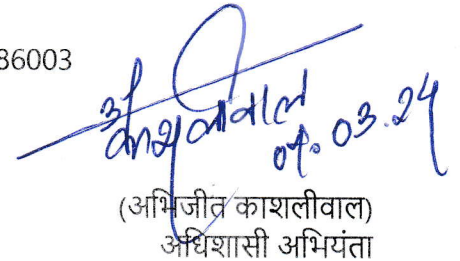 86003
काशलीवाल
07.03.24
(अभिजीत काशलीवाल)
अधिशासी अभियंता